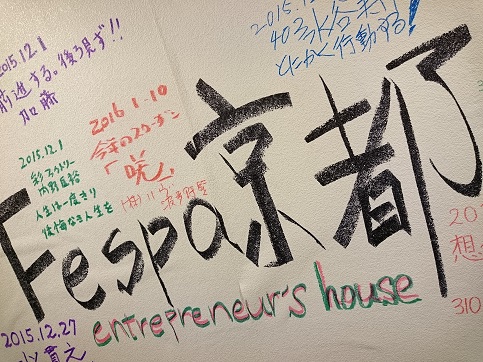 2015.12.1
前進する。後ろ見ず!!
加藤
2015.12.
とにかく行動する!
2016 1-10
今年のスローガン
「咲」
2015.12.1
人生は一度きり
後悔なき人生を
Fespa京都
entrepreneur's house
2015.12.27
20
想
310